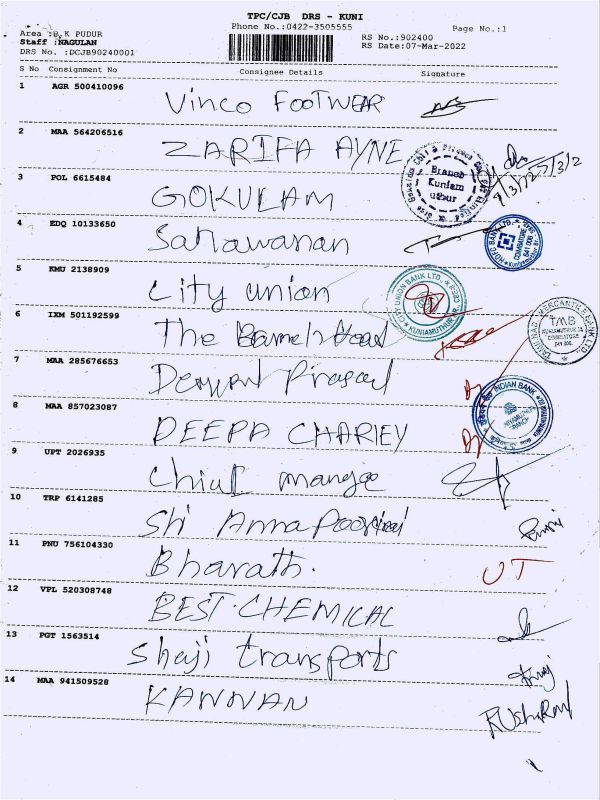 TPC/CJB DRS - KUNI
Phone No.:0422-3505555
Page No.:1
Area :B.K PUDUR
Staff :NAGULAN
DRS No. :DCJB90240001
RS No.:902400
RS Date:07-Mar-2022
S No Consignment No Consignee Details Signature
1 AGR 500410096
Vinco FOOTWEAR
2 MAA 564206516
ZARIFA AYNE
3 POL 6615484
GOKULAM
Branch
Kuniam
4 EDQ 10133650
Sarawanan
HDFC BANK LTD.
COIMBATORE
5 KMU 2138909
City union
CITY UNION BANK LTD.
KUNIAMUTHUR
6 IXM 501192599
The Branch Head
TAMILNAD MERCANTILE BANK LTD.
TMB
7 MAA 285676653
Prasad
8 MAA 857023087
INDIAN BANK
DEEPA CHARLEY
9 UPT 2026935
Chief manage
10 TRP 6141285
Sri Annapoorni
11 PNU 756104330
Bharath.
UT
12 VPL 520308748
BEST.CHEMICAL
13 PGT 1563514
Shaji transports
14 MAA 941509528
KANNAN